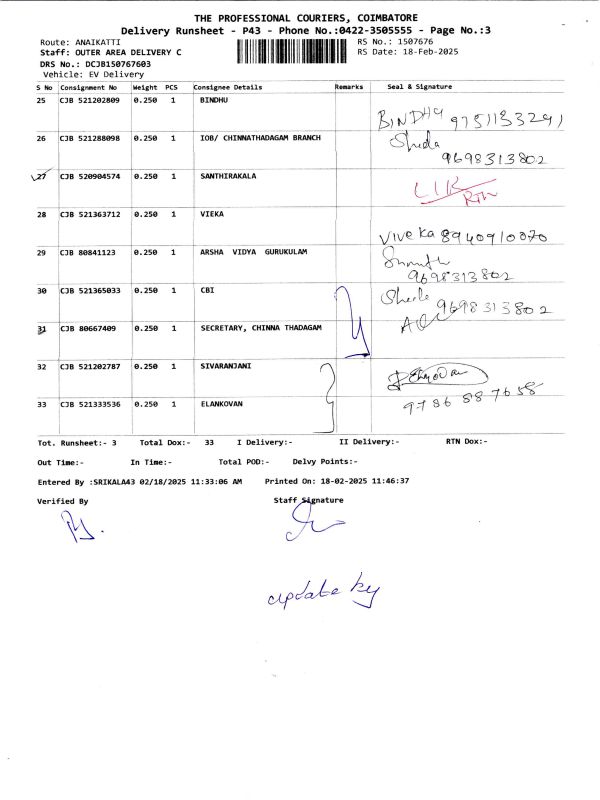 THE PROFESSIONAL COURIERS, COIMBATORE
Delivery Runsheet - P43 - Phone No.:0422-3505555 - Page No.:3
Route: ANAIKATTI RS No.: 1507676
Staff: OUTER AREA DELIVERY C RS Date: 18-Feb-2025
DRS No.: DCJB150767603
Vehicle: EV Delivery
S No Consignment No Weight PCS Consignee Details Remarks Seal & Signature
25 CJB 521202809 0.250 1 BINDHU
BINDHU 9751133291
26 CJB 521288098 0.250 1 IOB/ CHINNATHADAGAM BRANCH
9698313802
27 CJB 520904574 0.250 1 SANTHIRAKALA
RTN
28 CJB 521363712 0.250 1 VIEKA
Viveka 8940910070
29 CJB 80841123 0.250 1 ARSHA VIDYA GURUKULAM
9698313802
30 CJB 521365033 0.250 1 CBI
9698313802
31 CJB 80667409 0.250 1 SECRETARY, CHINNA THADAGAM
32 CJB 521202787 0.250 1 SIVARANJANI
33 CJB 521333536 0.250 1 ELANKOVAN
9786587658
Tot. Runsheet:- 3 Total Dox:- 33 I Delivery:- II Delivery:- RTN Dox:-
Out Time:- In Time:- Total POD:- Delvy Points:-
Entered By :SRIKALA43 02/18/2025 11:33:06 AM Printed On: 18-02-2025 11:46:37
Verified By Staff Signature
update by